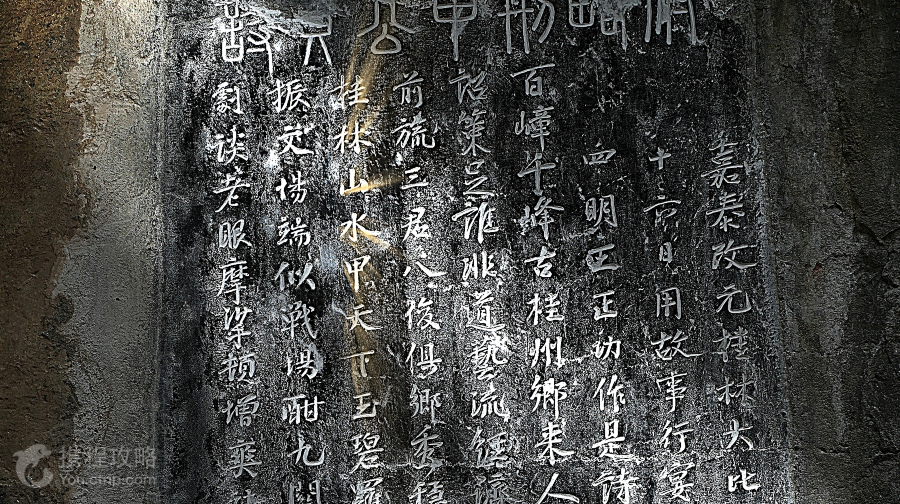 嘉泰改元桂林大比
十六日用故事行宴
四明王正功作是詩
百嶂千峰古桂州鄉來人
詔策足誰非道藝流經
前旒三君八俊俱鄉秀穩
桂林山水甲天下玉碧羅
振文場端似戰場酣九關
劇談老眼摩挲頓增爽
携程攻略
You.ctrip.com